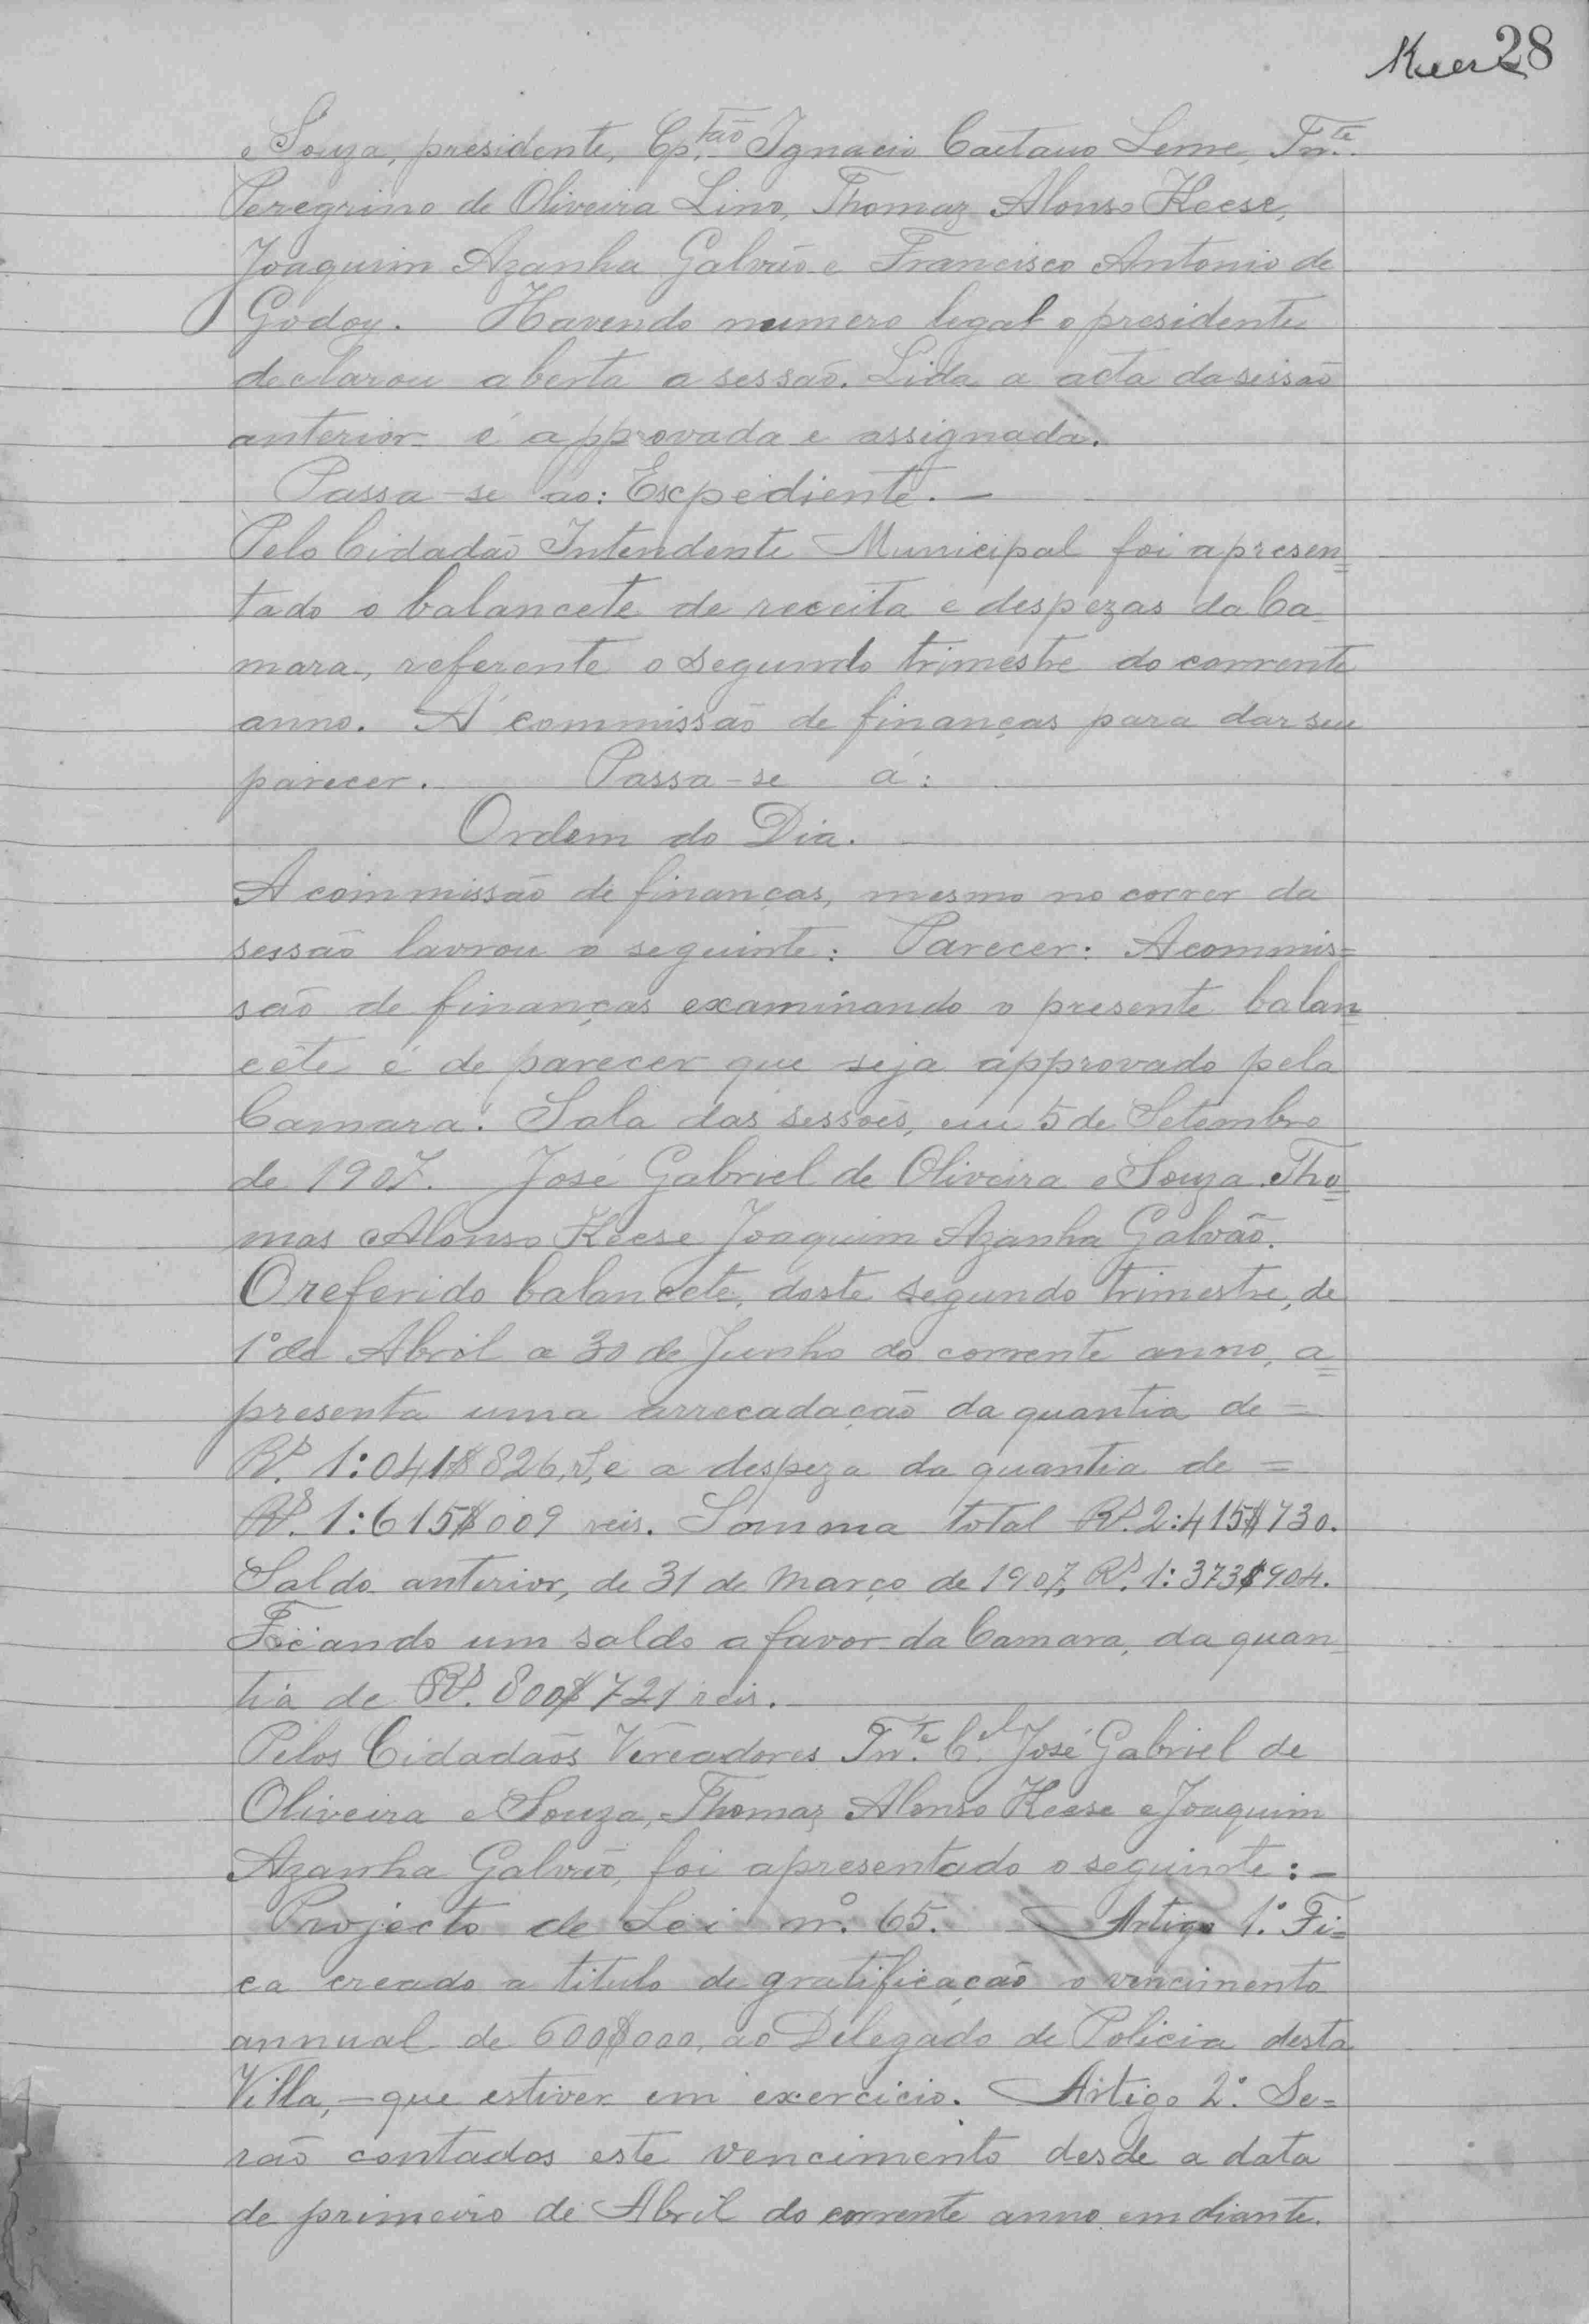 28
e Souza, presidente, Cp.tão Ignacio Caetano Leme, Tn.te
Peregrino de Oliveira Lino, Thomaz Alonso Keese,
Joaquim Azanha Galvão e Francisco Antonio de
Godoy. Havendo numero legal o presidente
declarou aberta a sessão. Lida a acta da sessão
anterior é approvada e assignada.
Passa-se ao: Expediente. —
Pelo Cidadão Intendente Municipal foi apresen=
tado o balancete de receita e despezas da Ca
mara, referente o segundo trimestre do corrente
anno. A' commissão de finanças para dar seu
parecer. Passa-se á:
Ordem do Dia.
A commissão de finanças, mesmo no correr da
sessão lavrou o seguinte: Parecer: A commis=
são de finanças examinando o presente balan=
cête é de parecer que seja approvado pela
Camara. Sala das sessões, em 5 de Setembro
de 1907. José Gabriel de Oliveira e Souza. Tho=
mas Alonso Keese Joaquim Azanha Galvão.
O referido balancete, deste segundo trimestre, de
1º de Abril a 30 de Junho do corrente anno, a=
presenta uma arrecadação da quantia de =
Rs. 1:041$826, e a despeza da quantia de =
Rs. 1:615$009 reis. Somma total Rs. 2:415$730.
Saldo anterior, de 31 de Março de 1907, Rs. 1:373$904.
Ficando um saldo a favor da Camara, da quan=
tia de Rs. 800$721 reis.
Pelos Cidadãos Vereadores Tn.te C.el José Gabriel de
Oliveira e Souza, Thomaz Alonso Keese e Joaquim
Azanha Galvão, foi apresentado o seguinte: —
Projecto de Lei nº. 65. Artigo 1.º Fi=
ca creado a titulo de gratificação o vencimento
annual de 600$000, ao Delegado de Policia desta
Villa, — que estiver em exercicio. Artigo 2.º Se=
rão contados este vencimento desde a data
de primeiro de Abril do corrente anno em diante.